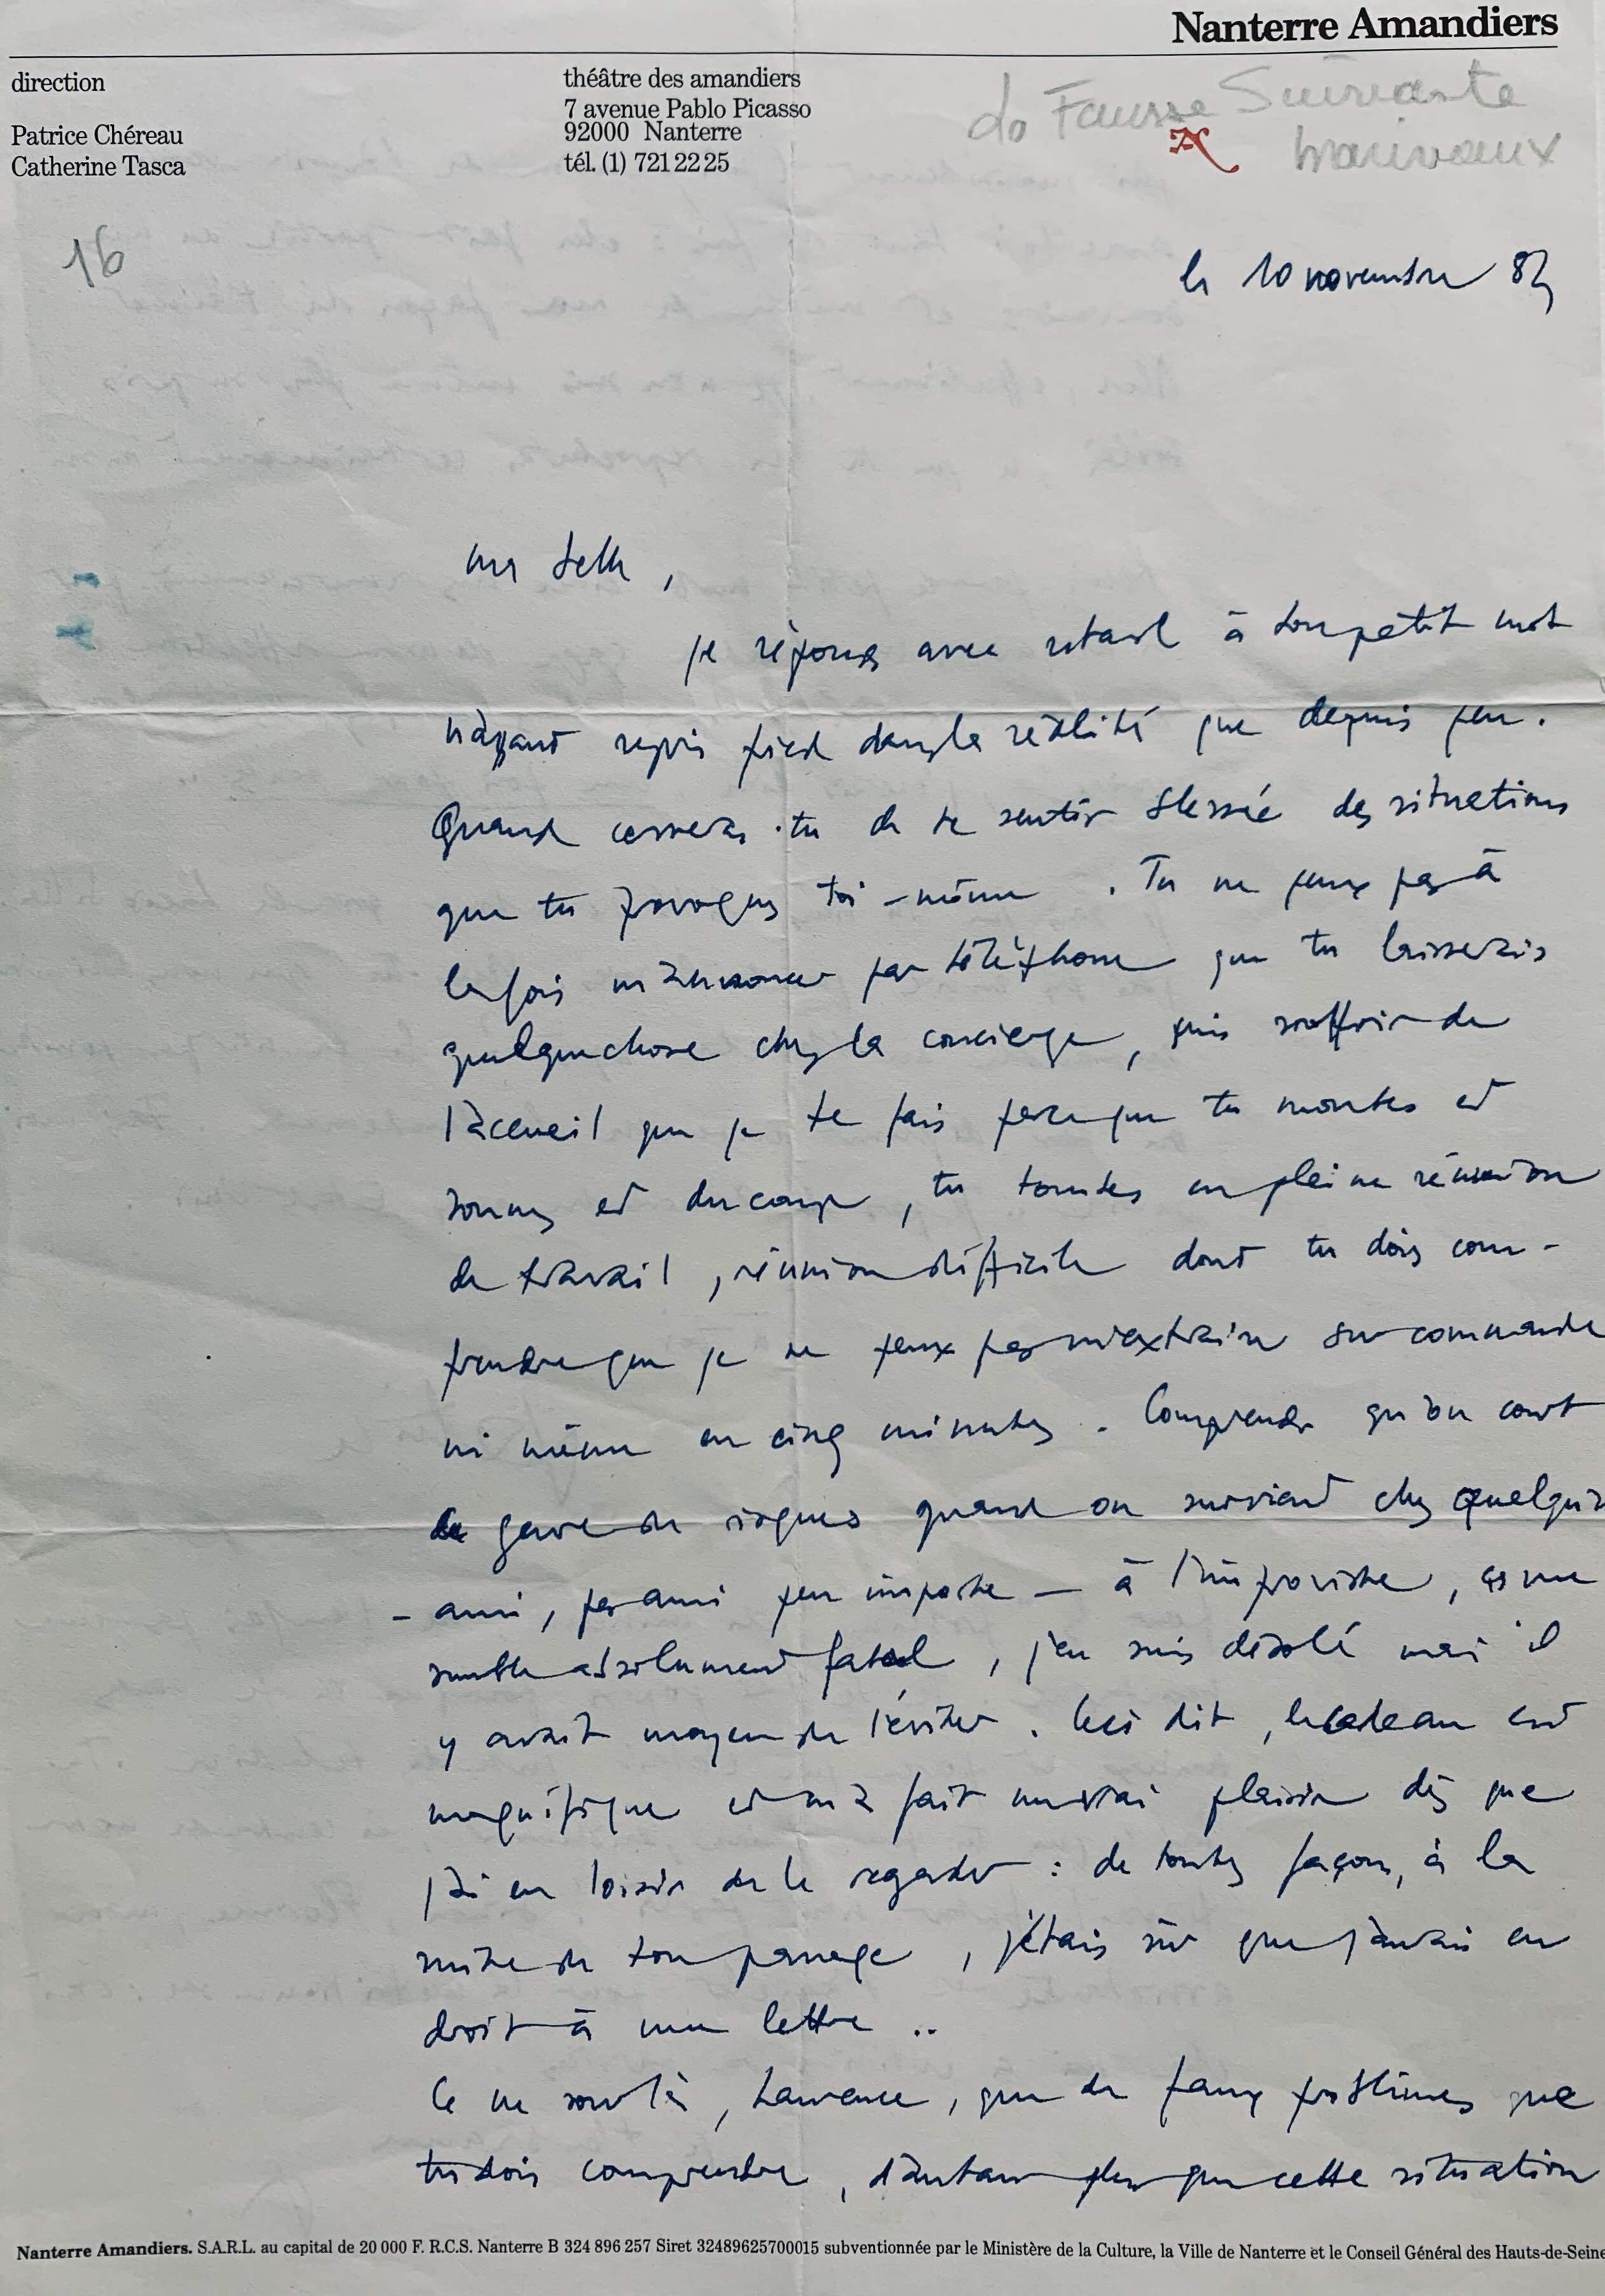 Nanterre Amandiers
direction
Patrice Chéreau
Catherine Tasca
théâtre des amandiers
7 avenue Pablo Picasso
92000 Nanterre
tél. (1) 721 22 25
La Fausse Suivante
Marivaux
16
le 10 novembre
ma belle,
je réponds avec retard à ton petit mot
n'ayant repris pied dans la réalité que depuis peu.
Quand cesseras-tu de te sentir blessée des situations
que tu provoques toi-même. Tu ne peux pas à
la fois m'annoncer par téléphone que tu laisserais
quelque chose chez la concierge, puis souffrir de
l'accueil que je te fais parce que tu montes et
sonnes et du coup, tu tombes en pleine réunion
de travail, réunion difficile dont tu dois com-
prendre que je ne peux pas m'extraire sur commande
ni même en cinq minutes. Comprends qu'on court
ce genre de risques quand on survient chez quelqu'un
- ami, pas ami peu importe - à l'improviste, ça me
semble absolument fatal, j'en suis désolé mais il
y avait moyen de l'éviter. Ceci dit, le cadeau est
magnifique et m'a fait un vrai plaisir dès que
j'ai eu loisir de le regarder : de toutes façons, à la
suite de ton passage, j'étais sûr que j'aurais eu
droit à une lettre ..
Ce ne sont là, Laurence, que de faux problèmes que
tu dois comprendre, d'autant plus que cette situation
Nanterre Amandiers. S.A.R.L. au capital de 20 000 F. R.C.S. Nanterre B 324 896 257 Siret 32489625700015 subventionnée par le Ministère de la Culture, la Ville de Nanterre et le Conseil Général des Hauts-de-Seine